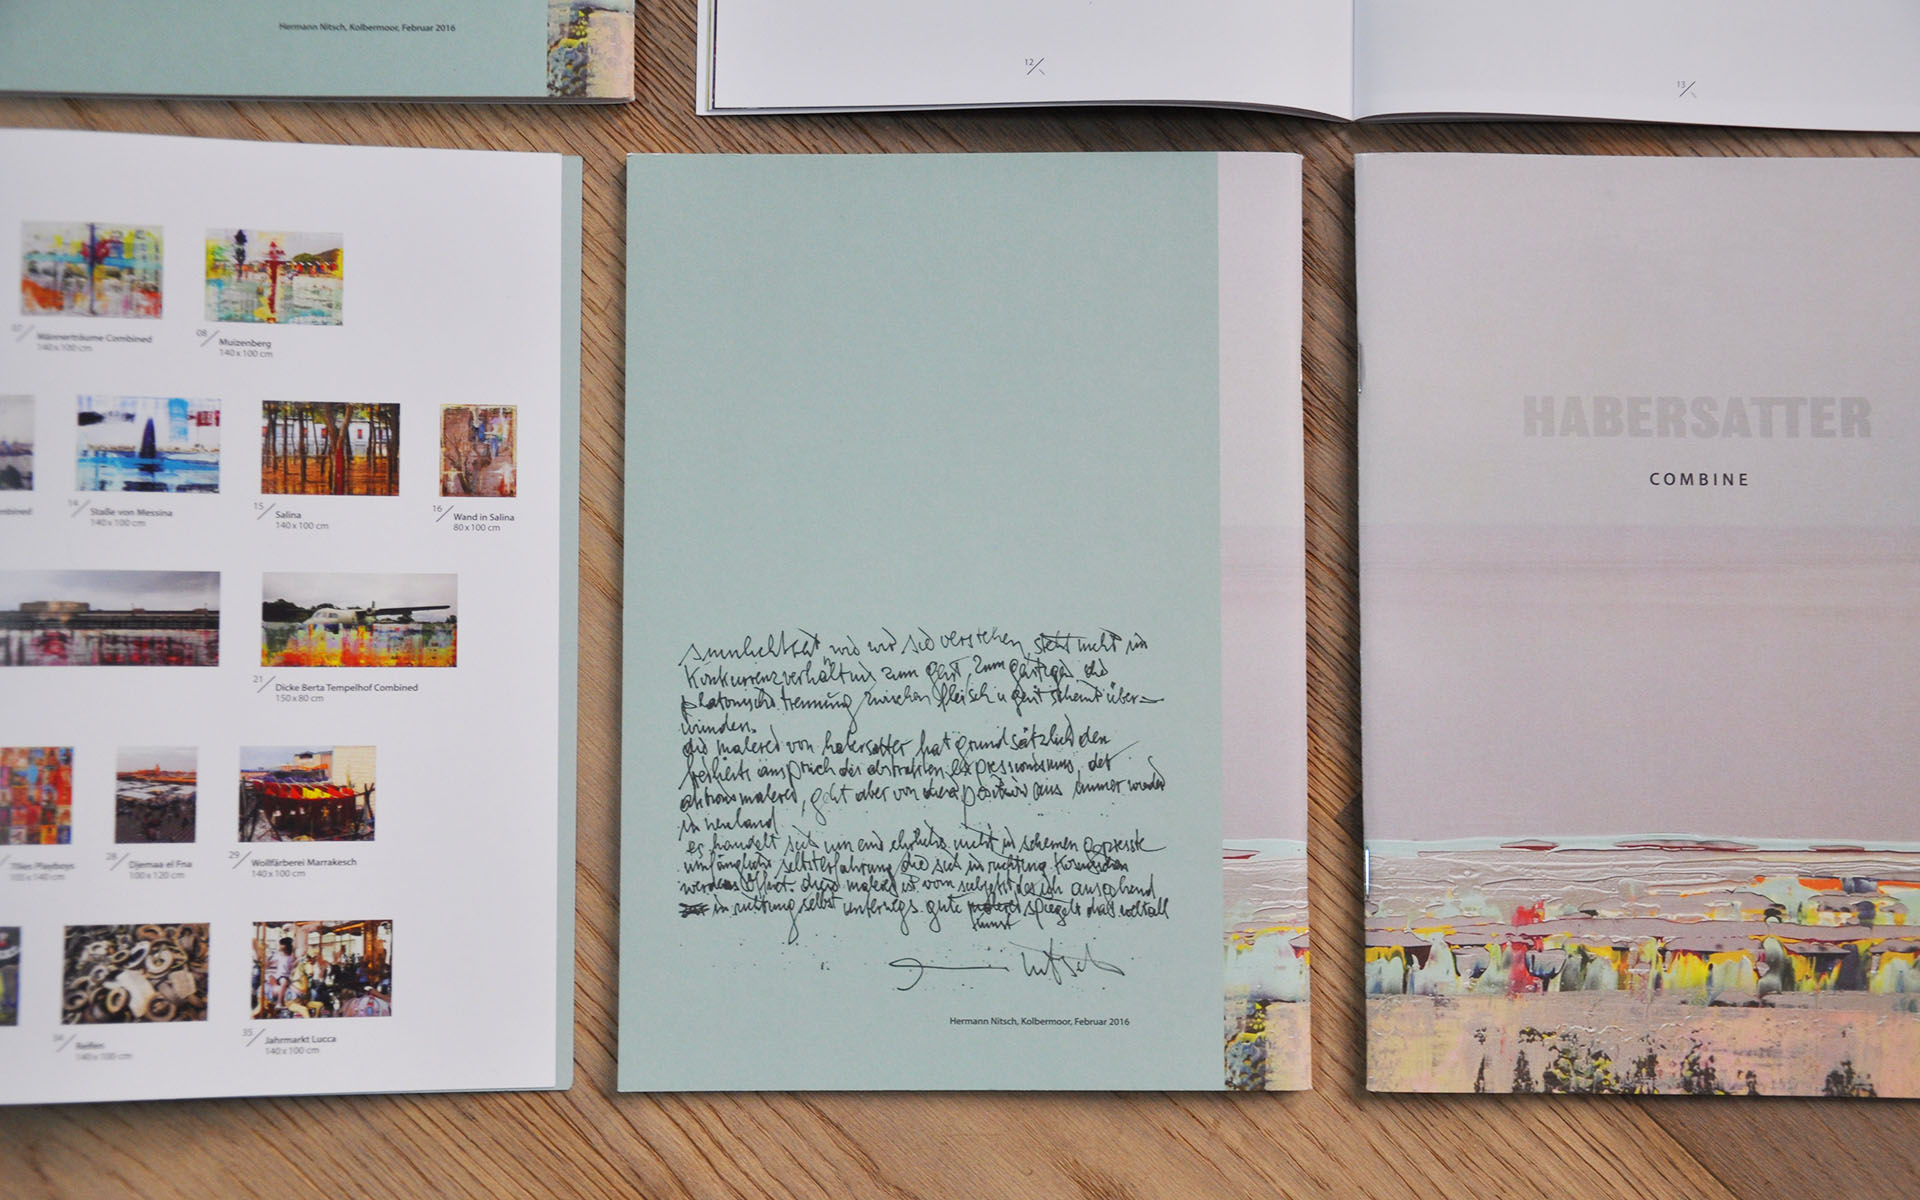 Hermann Nitsch, Kolbermoor, Februar 2016
12
13
07 Männerträume Combined
140 x 100 cm
08 Muizenberg
140 x 100 cm
14 Staße von Messina
140 x 100 cm
15 Salina
140 x 100 cm
16 Wand in Salina
80 x 100 cm
21 Dicke Berta Tempelhof Combined
150 x 80 cm
Playboys
140 cm
28 Djemaa el Fna
100 x 120 cm
29 Wollfärberei Marrakesch
140 x 100 cm
34 Reifen
140 x 100 cm
35 Jahrmarkt Lucca
140 x 100 cm
sinnlichkeit, wie wir sie verstehen, steht nicht im
konkurrenzverhältnis zum geist, zum geistigen die
platonische trennung zwischen fleisch u geist scheint über-
wunden.
die malerei von habersatter hat grundsätzlich den
freiheitsanspruch des abstrakten expressionismus, der
aktionsmalerei, geht aber von dieser position aus immer wieder
in neuland
es handelt sich um eine ehrliche nicht in schemen gepresste
umfängliche selbsterfahrung die sich in richtung kosmischen
werdens öffnet. diese malerei ist vom subjekt des ich ausgehend
in richtung selbst unterwegs. gute kunst spiegelt das weltall
nitsch
Hermann Nitsch, Kolbermoor, Februar 2016
HABERSATTER
COMBINE